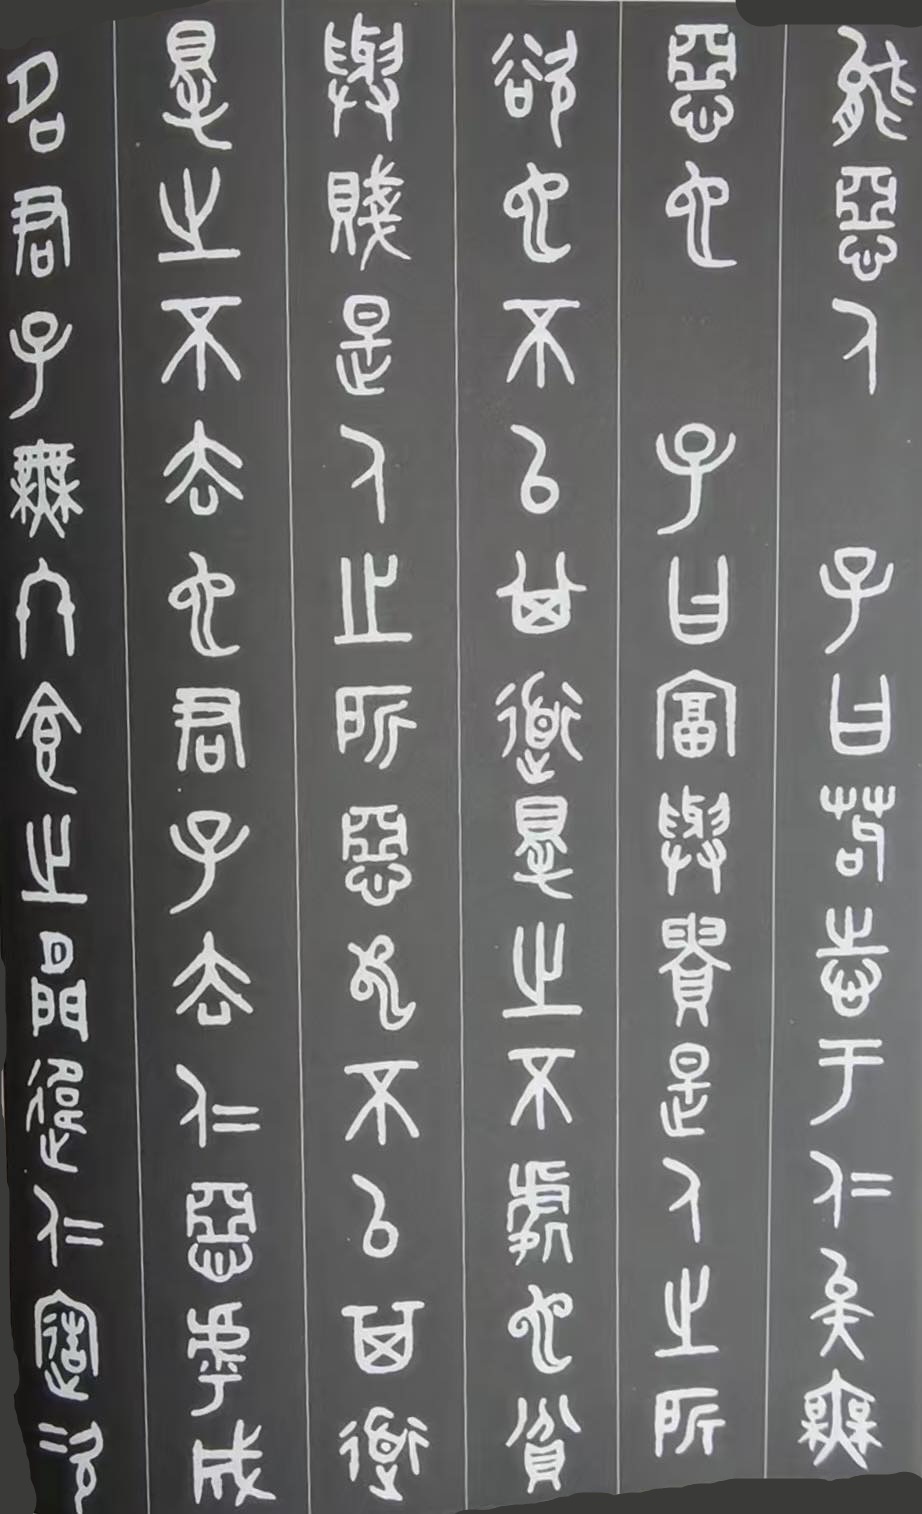 能惡人 子曰苟志于仁矣無
惡也 子曰富與貴是人之所
欲也不以其道得之不處也貧
與賤是人之所惡也不以其道
得之不去也君子去仁惡乎成
名君子無終食之閒違仁造次